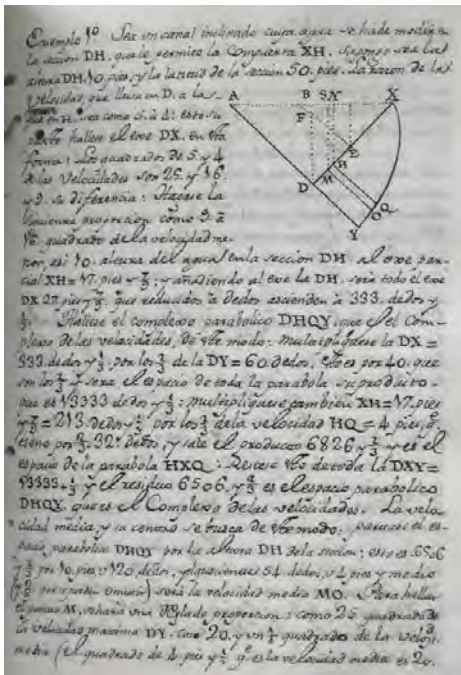 Exemplo 1º. Sea un canal inclinado cuya agua se ha de medir en
la seccion DH, que le permite la Compuerta XH. Supongo sea la
altura DH 10 pies, y la latitud de la seccion 50. pies. La razon de las
velocidad, que lleva en D. a la
A B S N X
F
E
D M H
O Q
Y
que en H. sea como 5. a 4:
hallese el exe DX. en
forma: Los quadrados de 5. y 4
de las velocidades son 25. y 16.
y 9. su diferencia: Hagase la
siguiente proporcion como 9. a
16. quadrado de la velocidad me-
nor asi 10. altura del agua en la seccion DH. al exe par-
cial XH = 17. pies y 7/9; y añadiendo al exe la DH. sera todo el exe
DX 27. pies y 7/9. que reducidos a dedos ascienden a 333. dedos y
1/3. Hallese el complexo parabolico DHQY, que es el Com-
plexo de las velocidades, de este modo: multipliquese la DX =
333. dedos y 1/3. por los 2/3 de la DY = 60. dedos, esto es por 40. que
son los 2/3 y sera el espacio de toda la parabola su producto
que es 13333 dedos y 1/3: multipliquese tambien XH = 17. pies
y 7/9 = 213. dedos y 1/3 por los 2/3 de la velocidad HQ = 4 pies,
esto es por 32. dedos, y sale el producto 6826 y 2/3 y es el
espacio de la parabola HXQ: Restese esto de toda la DXY =
13333. 1/3 y el residuo 6506. y 2/3 es el espacio parabolico
DHQY. que es el Complexo de las velocidades. La velo-
cidad media, y su centro se busca de este modo: partase el es-
pacio parabolico DHQY por la altura DH de la seccion; esto es 6506
por 10. pies, o 120 dedos, y 54 dedos, o 4 pies y medio
sera la velocidad media MO. Para hallar
el punto M, una regla de proporcion: como 25 quadrado de
la velocidad maxima DY. con 20. y un 1/4 quadrado de la velocid.
media (el quadrado de 4 pies y 1/2 qe. es la velocidad media es 20.